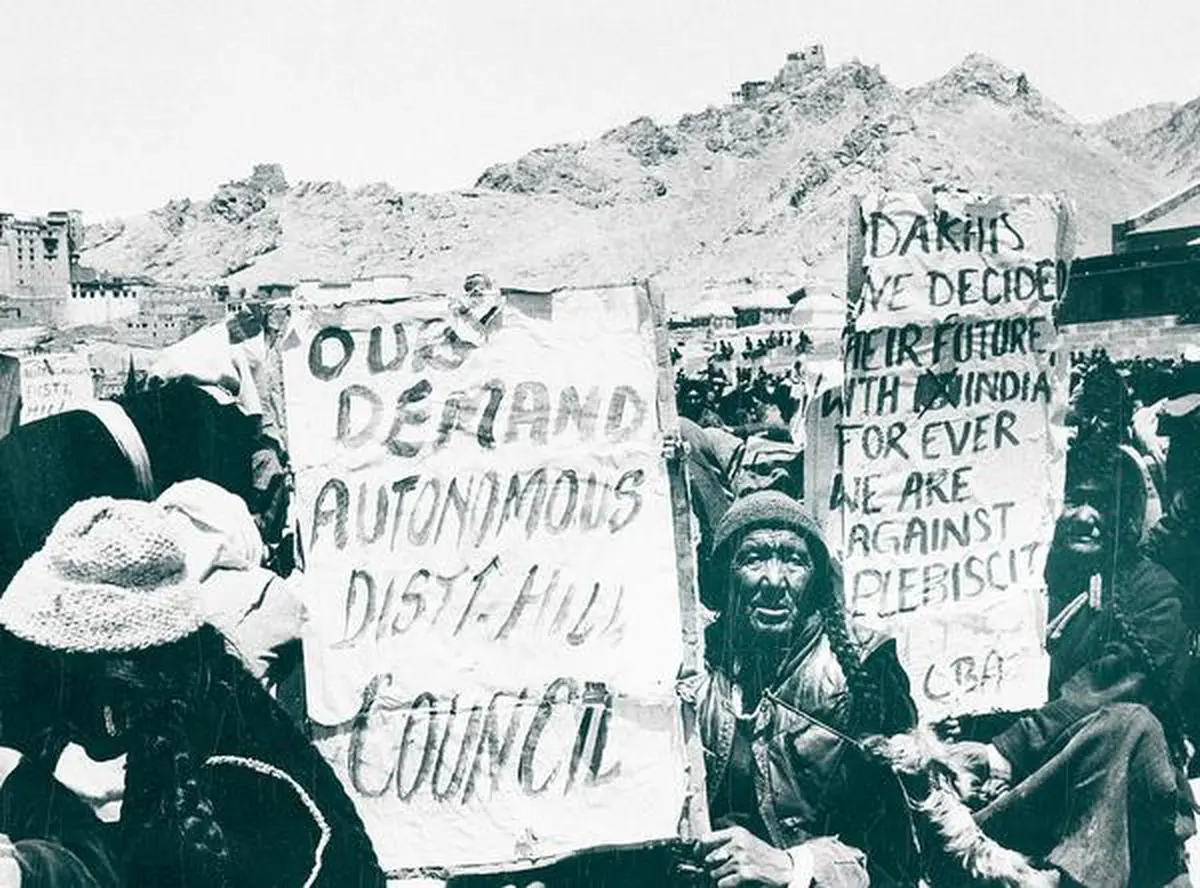 OUR
DEMAND
AUTONOMOUS
DISTT. HILL
COUNCIL
DAKHIS
DECIDED
FUTURE
INDIA
FOR EVER
WE ARE
AGAINST
PLEBISCIT
LBA
DISTT.